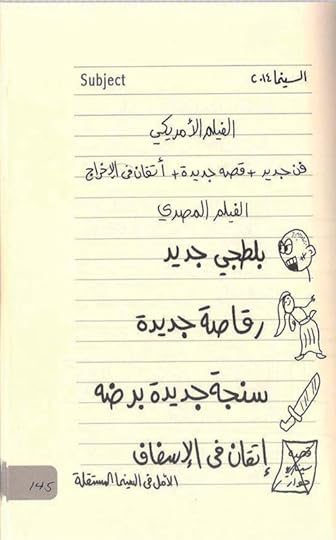 Subject
السينما ٢٠١٤
الفيلم الأمريكي
فن جديد + قصه جديدة + أتقان فى الإخراج
الفيلم المصدي
بلطجي جديد
رقاصة جديدة
سنجة جديدة برضه
إتقان فى الإسفاف
قصه
سيناريو
حوار
الأمل فى السينما المستقلة
145